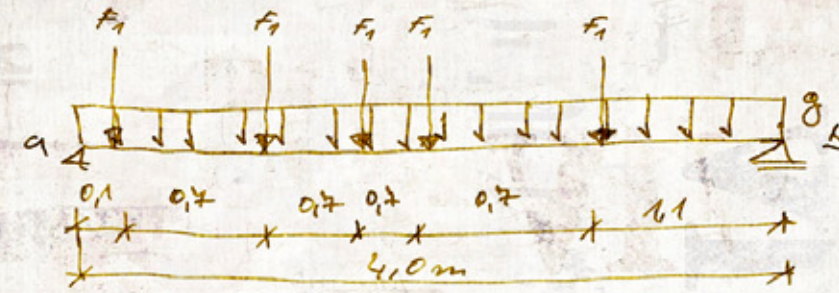 F₁ F₁ F₁ F₁ F₁
a g b
0,1 0,7 0,7 0,7 0,7 1,1
4,0 m